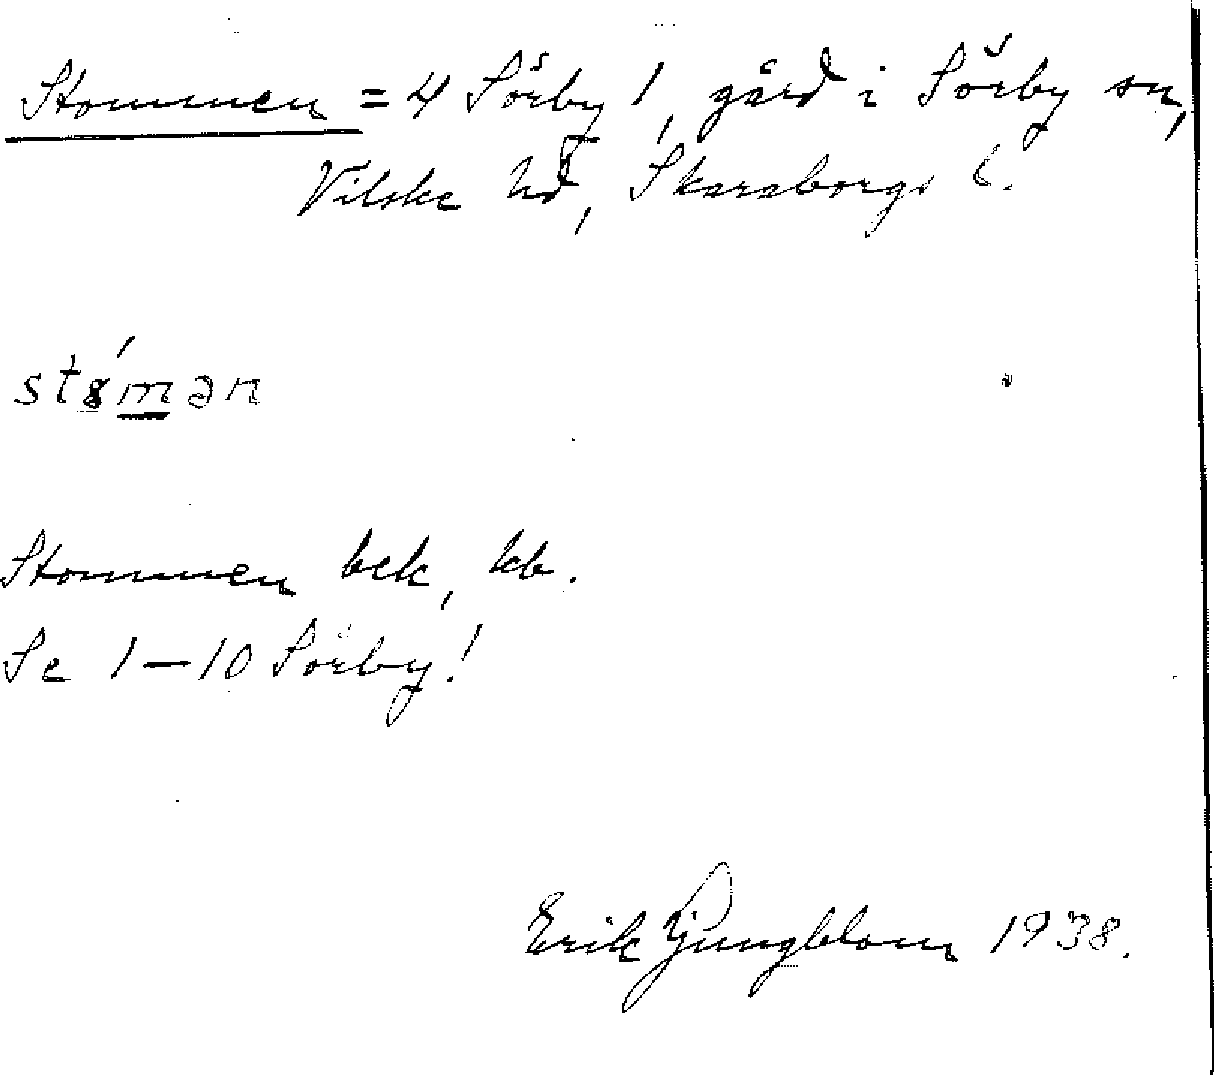 Stommen = 4 Sörby 1, gård i Sörby sn,
Vilske hd, Skaraborgs l.
støman
Stommen bek, kb.
Se 1–10 Sörby!
Erik Ljungblom 1938.